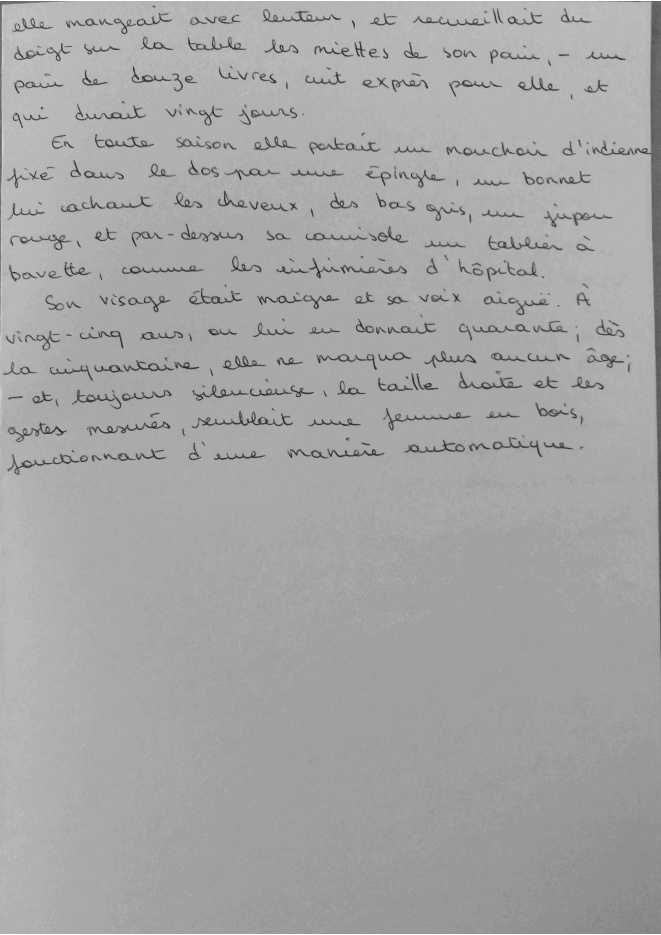 elle mangeait avec lenteur, et recueillait du
doigt sur la table les miettes de son pain, – un
pain de douze livres, cuit exprès pour elle, et
qui durait vingt jours.
En toute saison elle portait un mouchoir d'indienne
fixé dans le dos par une épingle, un bonnet
lui cachant les cheveux, des bas gris, un jupon
rouge, et par-dessus sa camisole un tablier à
bavette, comme les infirmières d'hôpital.
Son visage était maigre et sa voix aiguë. À
vingt-cinq ans, on lui en donnait quarante ; dès
la cinquantaine, elle ne marqua plus aucun âge ;
– et, toujours silencieuse, la taille droite et les
gestes mesurés, semblait une femme en bois,
fonctionnant d'une manière automatique.